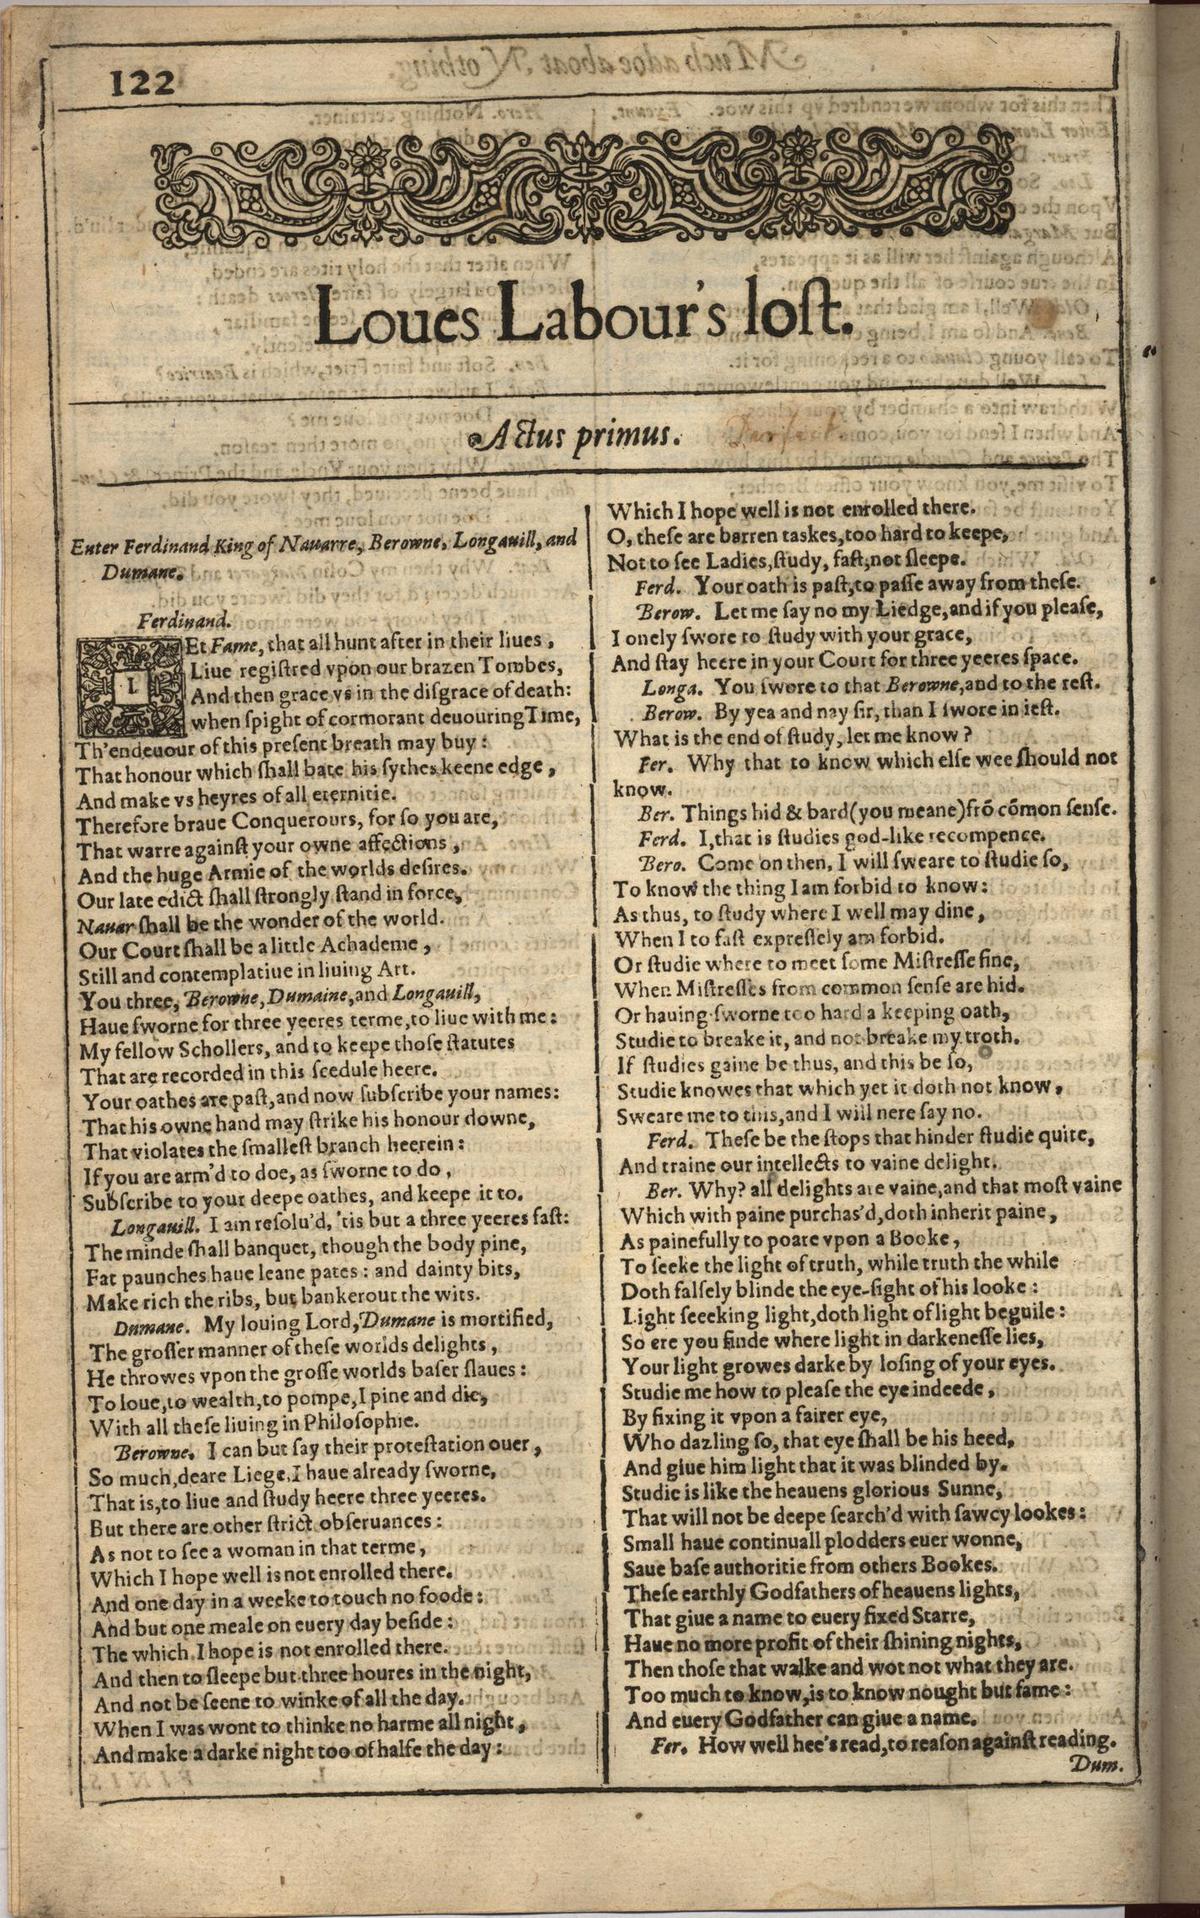 122
Loues Labour's lost.
Actus primus.
Enter Ferdinand King of Nauarre, Berowne, Longauill, and
Dumane.
Ferdinand.
LEt Fame, that all hunt after in their liues,
Liue registred vpon our brazen Tombes,
And then grace vs in the disgrace of death:
when spight of cormorant deuouring Time,
Th'endeuour of this present breath may buy:
That honour which shall bate his sythes keene edge,
And make vs heyres of all eternitie.
Therefore braue Conquerours, for so you are,
That warre against your owne affections,
And the huge Armie of the worlds desires.
Our late edict shall strongly stand in force,
Nauar shall be the wonder of the world.
Our Court shall be a little Achademe,
Still and contemplatiue in liuing Art.
You three, Berowne, Dumaine, and Longauill,
Haue sworne for three yeeres terme, to liue with me:
My fellow Schollers, and to keepe those statutes
That are recorded in this scedule heere.
Your oathes are past, and now subscribe your names:
That his owne hand may strike his honour downe,
That violates the smallest branch heerein:
If you are arm'd to doe, as sworne to do,
Subscribe to your deepe oathes, and keepe it to.
Longauill. I am resolu'd, 'tis but a three yeeres fast:
The minde shall banquet, though the body pine,
Fat paunches haue leane pates: and dainty bits,
Make rich the ribs, but bankerout the wits.
Dumane. My louing Lord, Dumane is mortified,
The grosser manner of these worlds delights,
He throwes vpon the grosse worlds baser slaues:
To loue, to wealth, to pompe, I pine and die,
With all these liuing in Philosophie.
Berowne. I can but say their protestation ouer,
So much, deare Liege, I haue already sworne,
That is, to liue and study heere three yeeres.
But there are other strict obseruances:
As not to see a woman in that terme,
Which I hope well is not enrolled there.
And one day in a weeke to touch no foode:
And but one meale on euery day beside:
The which I hope is not enrolled there.
And then to sleepe but three houres in the night,
And not be seene to winke of all the day.
When I was wont to thinke no harme all night,
And make a darke night too of halfe the day:
Which I hope well is not enrolled there.
O, these are barren taskes, too hard to keepe,
Not to see Ladies, study, fast, not sleepe.
Ferd. Your oath is past, to passe away from these.
Berow. Let me say no my Liedge, and if you please,
I onely swore to study with your grace,
And stay heere in your Court for three yeeres space.
Longa. You swore to that Berowne, and to the rest.
Berow. By yea and nay sir, than I swore in iest.
What is the end of study, let me know?
Fer. Why that to know which else wee should not
know.
Ber. Things hid & bard (you meane) frõ cõmon sense.
Ferd. I, that is studies god-like recompence.
Bero. Come on then, I will sweare to studie so,
To know the thing I am forbid to know:
As thus, to study where I well may dine,
When I to fast expressely am forbid.
Or studie where to meet some Mistresse fine,
When Mistresses from common sense are hid.
Or hauing sworne too hard a keeping oath,
Studie to breake it, and not breake my troth.
If studies gaine be thus, and this be so,
Studie knowes that which yet it doth not know,
Sweare me to this, and I will nere say no.
Ferd. These be the stops that hinder studie quite,
And traine our intellects to vaine delight.
Ber. Why? all delights are vaine, and that most vaine
Which with paine purchas'd, doth inherit paine,
As painefully to poare vpon a Booke,
To seeke the light of truth, while truth the while
Doth falsely blinde the eye-sight of his looke:
Light seeeking light, doth light of light beguile:
So ere you finde where light in darkenesse lies,
Your light growes darke by losing of your eyes.
Studie me how to please the eye indeede,
By fixing it vpon a fairer eye,
Who dazling so, that eye shall be his heed,
And giue him light that it was blinded by.
Studie is like the heauens glorious Sunne,
That will not be deepe search'd with sawcy lookes:
Small haue continuall plodders euer wonne,
Saue base authoritie from others Bookes.
These earthly Godfathers of heauens lights,
That giue a name to euery fixed Starre,
Haue no more profit of their shining nights,
Then those that walke and wot not what they are.
Too much to know, is to know nought but fame:
And euery Godfather can giue a name.
Fer. How well hee's read, to reason against reading.
Dum.